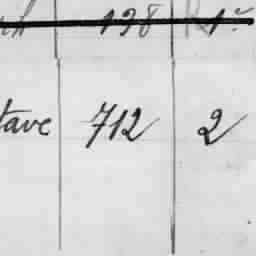 198 1º
tave 712 2